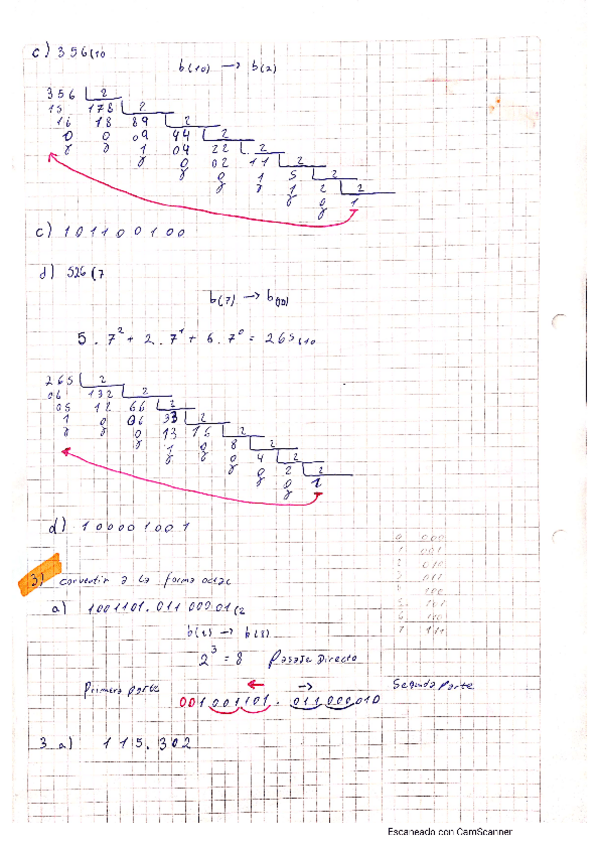 c) 356(10
b(10) → b(2)
356 2
15 178 2
16 18 89 2
0 0 09 44 2
1 04 22 2
0 02 11 2
0 1 5 2
1 2 2
0 1
c) 101100100
d) 526(7
b(7) → b(10)
5.7²+2.7¹+6.7⁰=265(10
265 2
06 132 2
05 12 66 2
1 0 06 33 2
0 13 16 2
1 0 8 2
0 4 2
0 2 2
0 1
d) 100001001
3) convertir a la forma octal
a) 1001101.01100001(2
b(2) → b(8)
2³=8 Pasaje Directo
Primera parte ← → Segunda Parte
001001101.011000010
3 a) 115.302
0 000
1 001
2 010
3 011
4 100
5 101
6 110
7 111
Escaneado con CamScanner